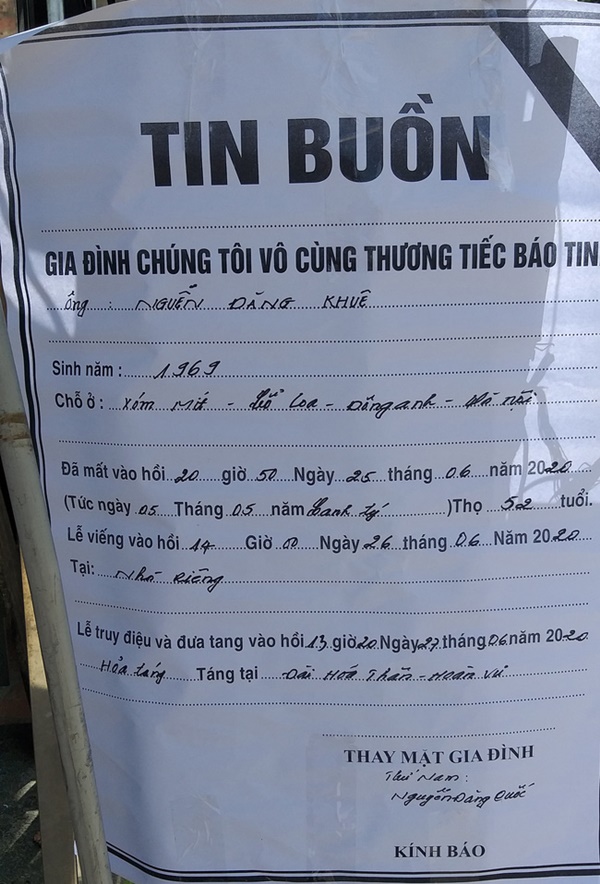 TIN BUỒN
GIA ĐÌNH CHÚNG TÔI VÔ CÙNG THƯƠNG TIẾC BÁO TIN
Ông : NGUỄN ĐĂNG KHUÊ
Sinh năm : 1969
Chỗ ở : Xóm Mít - Cổ Loa - Đông anh - Hà nội
Đã mất vào hồi 20 giờ 50 Ngày 25 tháng 06 năm 2020
(Tức ngày 05 Tháng 05 năm Canh Tý )Thọ 52 tuổi.
Lễ viếng vào hồi 14 Giờ 00 Ngày 26 tháng 06 Năm 2020
Tại: Nhà Riêng
Lễ truy điệu và đưa tang vào hồi 13 giờ 20 Ngày 27 tháng 06 năm 2020
Hỏa táng Táng tại Đài Hóa Thân - Hoàn Vũ
THAY MẶT GIA ĐÌNH
Thứ Nam :
Nguyễn Đăng Quốc
KÍNH BÁO